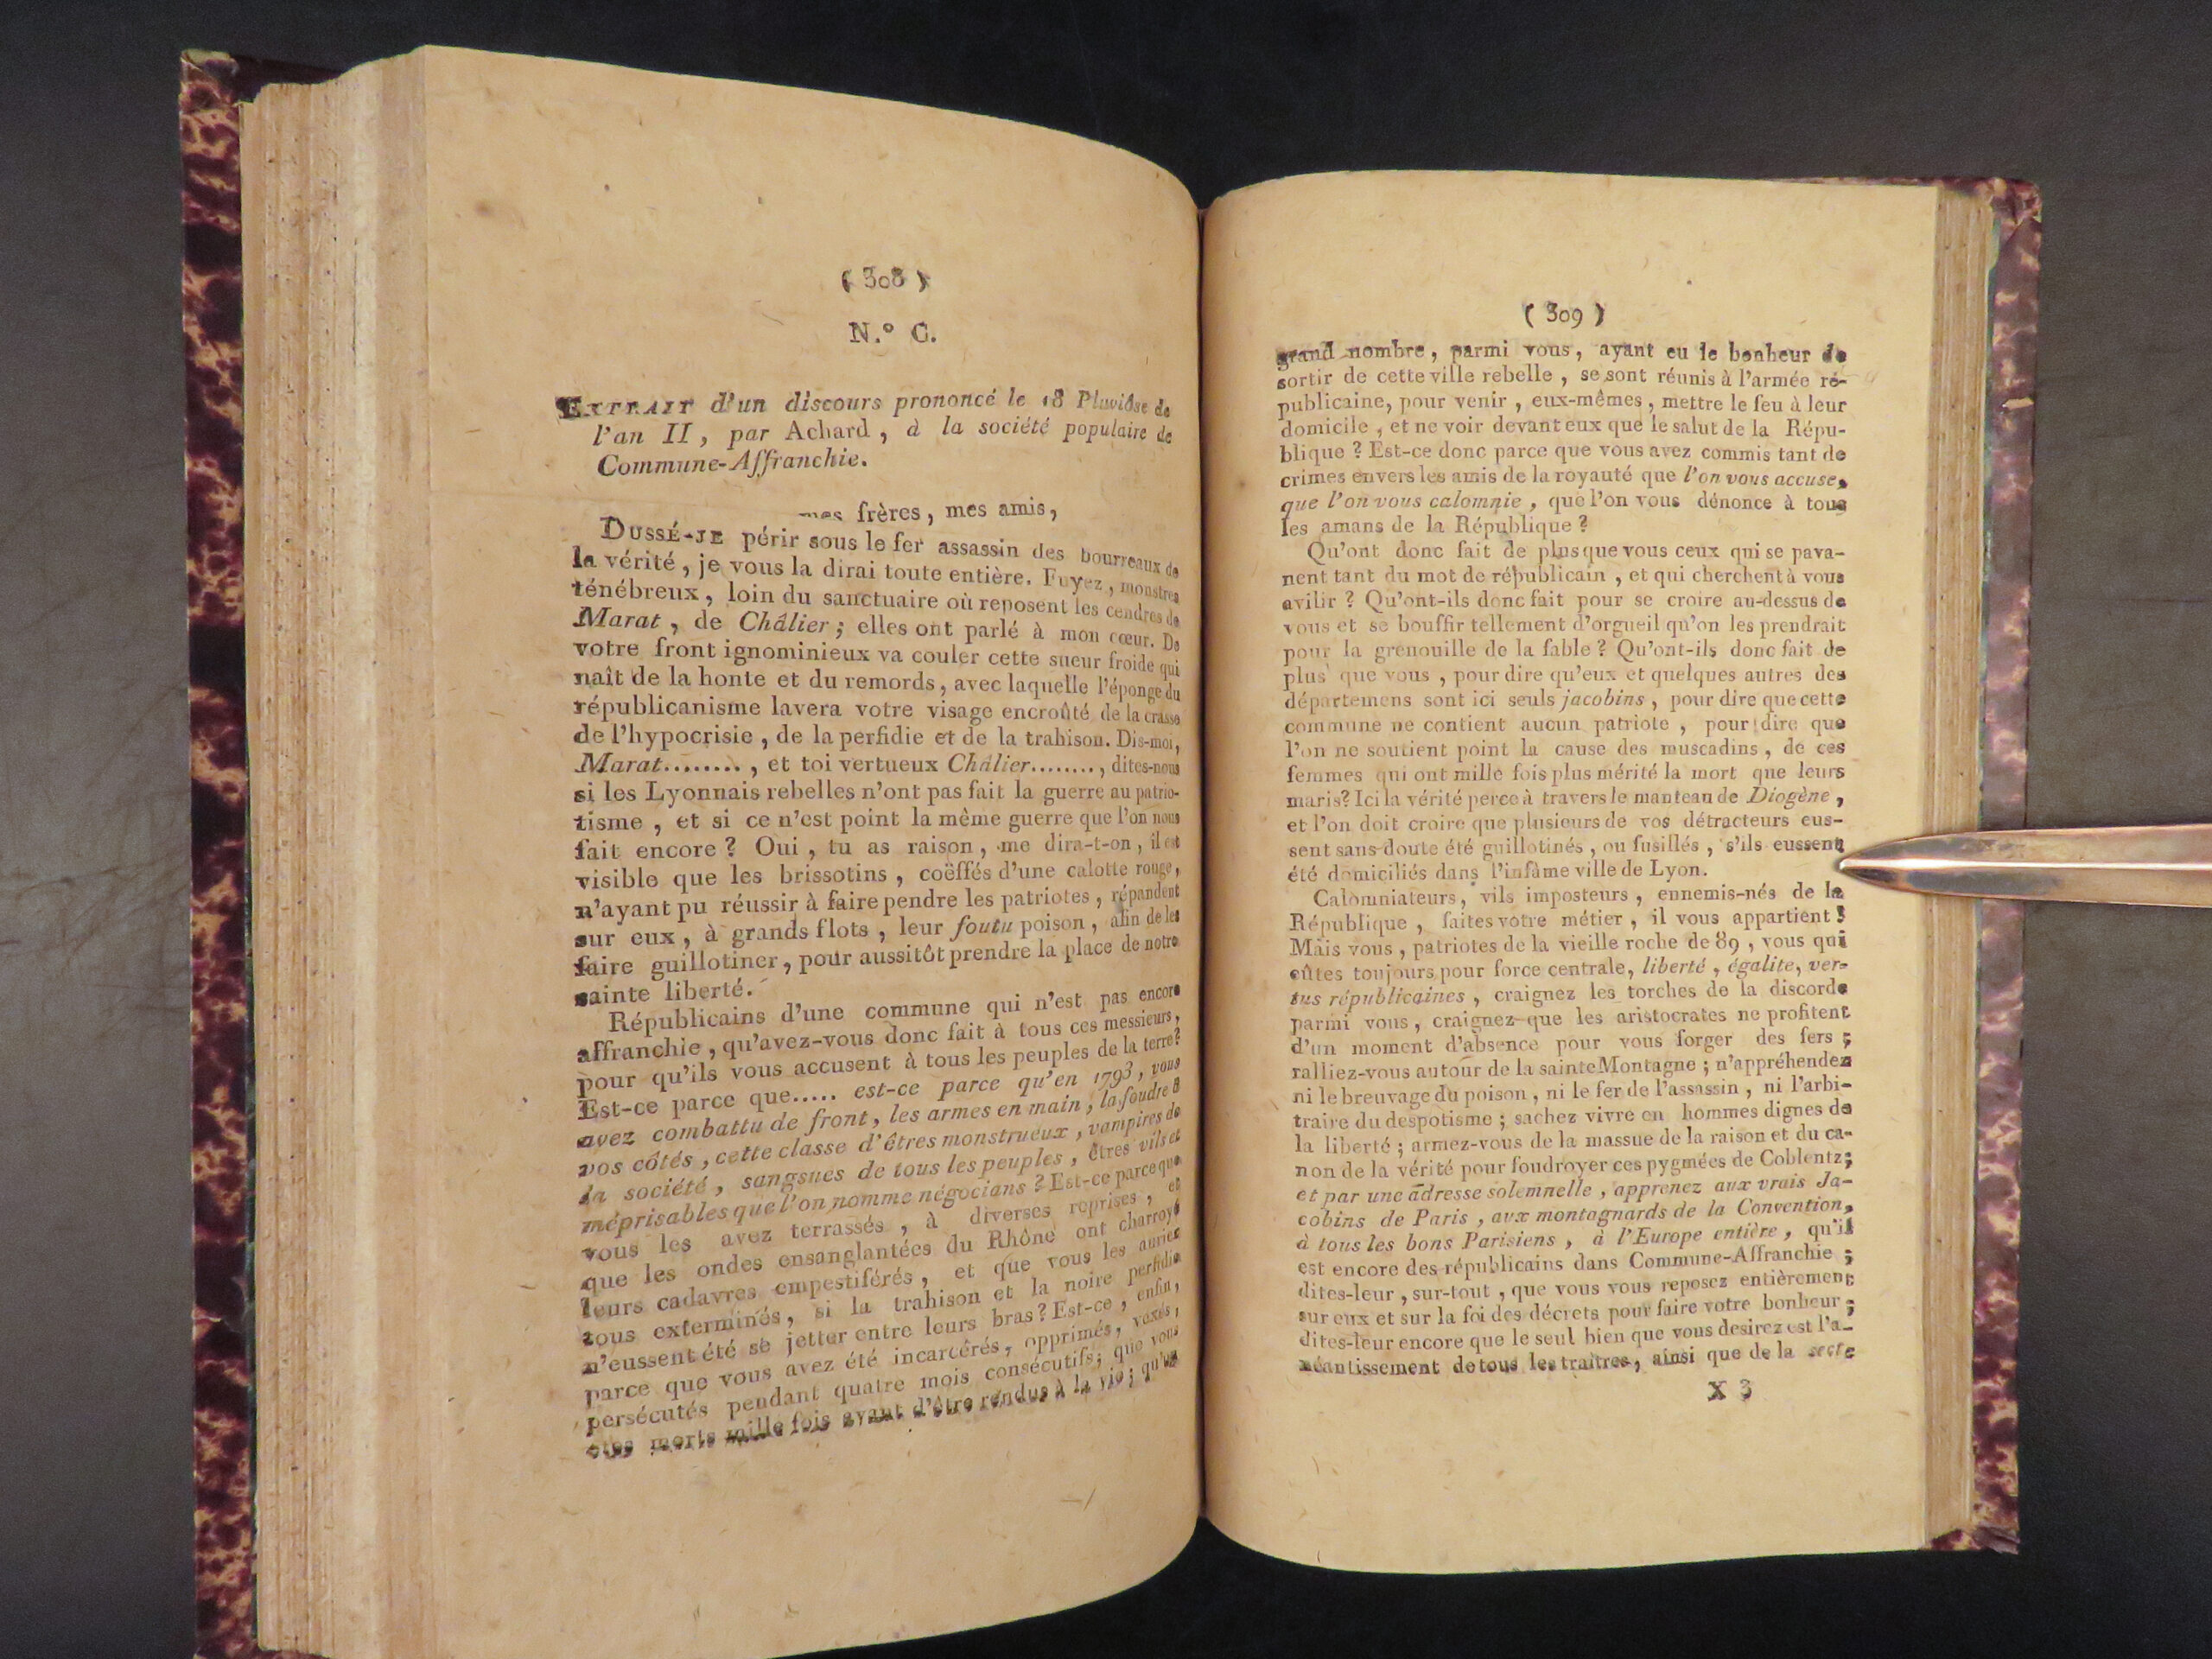 ( 308 )
N.° C.
EXTRAIT d'un discours prononcé le 18 Pluviôse de
l'an II, par Achard, à la société populaire de
Commune-Affranchie.
mes frères, mes amis,
DUSSÉ-JE périr sous le fer assassin des bourreaux de
la vérité, je vous la dirai toute entière. Fuyez, monstres
ténébreux, loin du sanctuaire où reposent les cendres de
Marat, de Châlier; elles ont parlé à mon cœur. De
votre front ignominieux va couler cette sueur froide qui
naît de la honte et du remords, avec laquelle l'éponge du
républicanisme lavera votre visage encroûté de la crasse
de l'hypocrisie, de la perfidie et de la trahison. Dis-moi,
Marat........, et toi vertueux Châlier........, dites-nous
si les Lyonnais rebelles n'ont pas fait la guerre au patrio-
tisme, et si ce n'est point la même guerre que l'on nous
fait encore? Oui, tu as raison, me dira-t-on, il est
visible que les brissotins, coëffés d'une calotte rouge,
n'ayant pu réussir à faire pendre les patriotes, répandent
sur eux, à grands flots, leur foutu poison, afin de les
faire guillotiner, pour aussitôt prendre la place de notre
sainte liberté.
Républicains d'une commune qui n'est pas encore
affranchie, qu'avez-vous donc fait à tous ces messieurs,
pour qu'ils vous accusent à tous les peuples de la terre?
Est-ce parce que..... est-ce parce qu'en 1793, vous
avez combattu de front, les armes en main, la foudre à
vos côtés, cette classe d'êtres monstrueux, vampires de
la société, sangsues de tous les peuples, êtres vils et
méprisables que l'on nomme négocians? Est-ce parce que
vous les avez terrassés, à diverses reprises, et
que les ondes ensanglantées du Rhône ont charroyé
leurs cadavres empestiférés, et que vous les auriez
tous exterminés, si la trahison et la noire perfidie
n'eussent été se jetter entre leurs bras? Est-ce, enfin,
parce que vous avez été incarcérés, opprimés, vexés,
persécutés pendant quatre mois consécutifs; que vous
êtes morts mille fois avant d'être rendus à la vie; qu'un
( 309 )
grand nombre, parmi vous, ayant eu le bonheur de
sortir de cette ville rebelle, se sont réunis à l'armée ré-
publicaine, pour venir, eux-mêmes, mettre le feu à leur
domicile, et ne voir devant eux que le salut de la Répu-
blique? Est-ce donc parce que vous avez commis tant de
crimes envers les amis de la royauté que l'on vous accuse,
que l'on vous calomnie, que l'on vous dénonce à tous
les amans de la République?
Qu'ont donc fait de plus que vous ceux qui se pava-
nent tant du mot de républicain, et qui cherchent à vous
avilir? Qu'ont-ils donc fait pour se croire au-dessus de
vous et se bouffir tellement d'orgueil qu'on les prendrait
pour la grenouille de la fable? Qu'ont-ils donc fait de
plus que vous, pour dire qu'eux et quelques autres des
départemens sont ici seuls jacobins, pour dire que cette
commune ne contient aucun patriote, pour dire que
l'on ne soutient point la cause des muscadins, de ces
femmes qui ont mille fois plus mérité la mort que leurs
maris? Ici la vérité perce à travers le manteau de Diogène,
et l'on doit croire que plusieurs de vos détracteurs eus-
sent sans doute été guillotinés, ou fusillés, s'ils eussent
été domiciliés dans l'infâme ville de Lyon.
Calomniateurs, vils imposteurs, ennemis-nés de la
République, faites votre métier, il vous appartient!
Mais vous, patriotes de la vieille roche de 89, vous qui
eûtes toujours pour force centrale, liberté, égalité, ver-
tus républicaines, craignez les torches de la discorde
parmi vous, craignez que les aristocrates ne profitent
d'un moment d'absence pour vous forger des fers;
ralliez-vous autour de la sainte Montagne; n'appréhendez
ni le breuvage du poison, ni le fer de l'assassin, ni l'arbi-
traire du despotisme; sachez vivre en hommes dignes de
la liberté; armez-vous de la massue de la raison et du ca-
non de la vérité pour foudroyer ces pygmées de Coblentz;
et par une adresse solemnelle, apprenez aux vrais Ja-
cobins de Paris, aux montagnards de la Convention,
à tous les bons Parisiens, à l'Europe entière, qu'il
est encore des républicains dans Commune-Affranchie;
dites-leur, sur-tout, que vous vous reposez entièrement
sur eux et sur la foi des décrets pour faire votre bonheur;
dites-leur encore que le seul bien que vous desirez est l'a-
néantissement de tous les traîtres, ainsi que de la secte
X 3